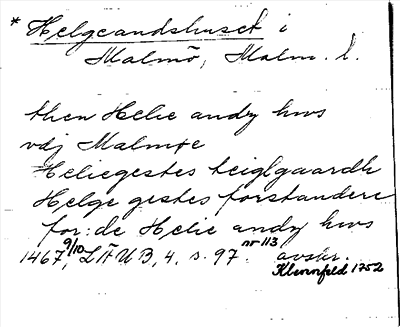 * Helgeandshuset i
Malmö, Malm. l.
then Helie andz hws
vdj Malmøe
Heliegestes teiglgaardh
Helge gestes forstandere
for: de Helie andz hws
1467 9/10, LÄUB, 4, s. 97. nr 113 avskr.
Klevenfeld 1752